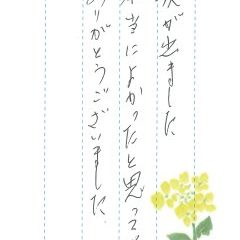 が出ました
当によかったと思って
りがとうございました